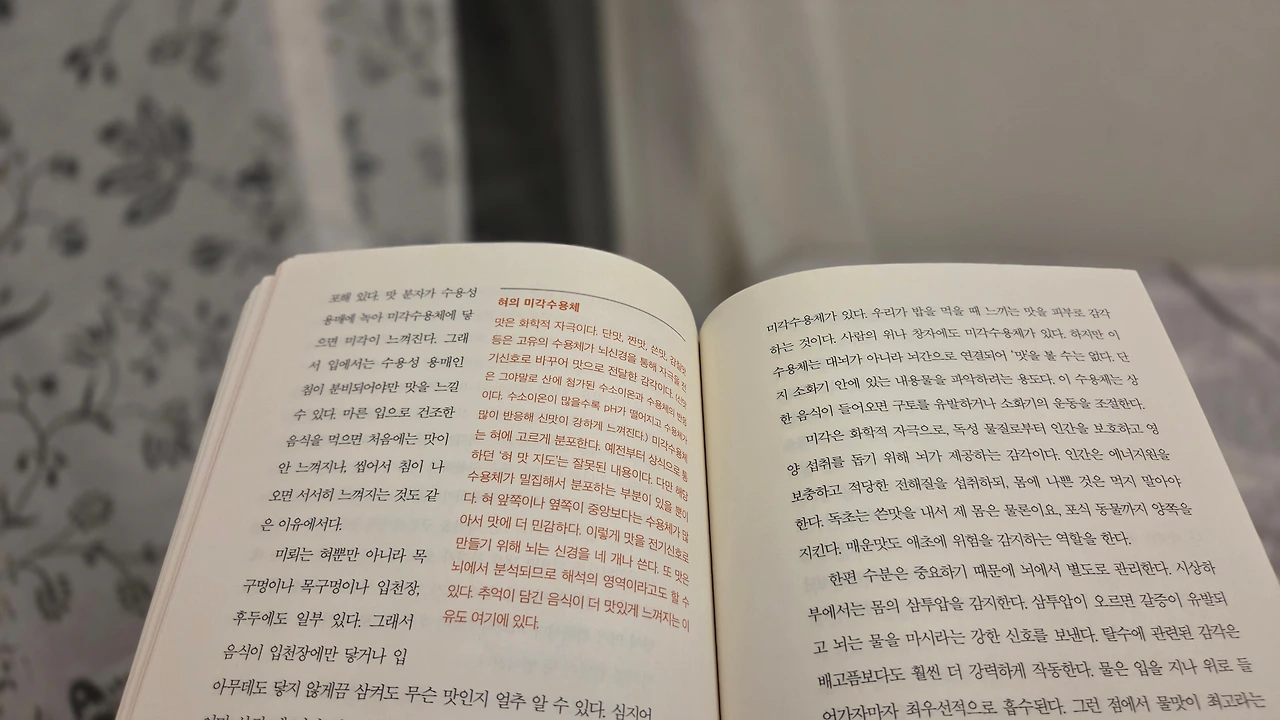 포해 있다. 맛 분자가 수용성
용매에 녹아 미각수용체에 닿
으면 미각이 느껴진다. 그래
서 입에서는 수용성 용매인
침이 분비되어야만 맛을 느낄
수 있다. 마른 입으로 건조한
음식을 먹으면 처음에는 맛이
안 느껴지나, 씹어서 침이 나
오면 서서히 느껴지는 것도 같
은 이유에서다.
미뢰는 혀뿐만 아니라 목
구멍이나 목구멍이나 입천장,
후두에도 일부 있다. 그래서
음식이 입천장에만 닿거나 입
아무데도 닿지 않게끔 삼켜도 무슨 맛인지 얼추 알 수 있다. 심지어
혀의 미각수용체
맛은 화학적 자극이다. 단맛, 짠맛, 쓴맛, 감칠맛
등은 고유의 수용체가 뇌신경을 통해 자극을 전
기신호로 바꾸어 맛으로 전달한 감각이다. (신맛
은 그야말로 산에 첨가된 수소이온과 수용체의 반응
이다. 수소이온이 많을수록 pH가 떨어지고 수용체가
많이 반응해 신맛이 강하게 느껴진다.) 미각수용체
는 혀에 고르게 분포한다. 예전부터 상식으로 통
하던 '혀 맛 지도'는 잘못된 내용이다. 다만 해당
수용체가 밀집해서 분포하는 부분이 있을 뿐이
다. 혀 앞쪽이나 옆쪽이 중앙보다는 수용체가 많
아서 맛에 더 민감하다. 이렇게 맛을 전기신호로
만들기 위해 뇌는 신경을 네 개나 쓴다. 또 맛은
뇌에서 분석되므로 해석의 영역이라고도 할 수
있다. 추억이 담긴 음식이 더 맛있게 느껴지는 이
유도 여기에 있다.
미각수용체가 있다. 우리가 밥을 먹을 때 느끼는 맛을 피부로 감각
하는 것이다. 사람의 위나 창자에도 미각수용체가 있다. 하지만 이
수용체는 대뇌가 아니라 뇌간으로 연결되어 '맛'을 볼 수는 없다. 단
지 소화기 안에 있는 내용물을 파악하려는 용도다. 이 수용체는 상
한 음식이 들어오면 구토를 유발하거나 소화기의 운동을 조절한다.
미각은 화학적 자극으로, 독성 물질로부터 인간을 보호하고 영
양 섭취를 돕기 위해 뇌가 제공하는 감각이다. 인간은 에너지원을
보충하고 적당한 전해질을 섭취하되, 몸에 나쁜 것은 먹지 말아야
한다. 독초는 쓴맛을 내서 제 몸은 물론이요, 포식 동물까지 양쪽을
지킨다. 매운맛도 애초에 위험을 감지하는 역할을 한다.
한편 수분은 중요하기 때문에 뇌에서 별도로 관리한다. 시상하
부에서는 몸의 삼투압을 감지한다. 삼투압이 오르면 갈증이 유발되
고 뇌는 물을 마시라는 강한 신호를 보낸다. 탈수에 관련된 감각은
배고픔보다도 훨씬 더 강력하게 작동한다. 물은 입을 지나 위로 들
어가자마자 최우선적으로 흡수된다. 그런 점에서 물맛이 최고라는